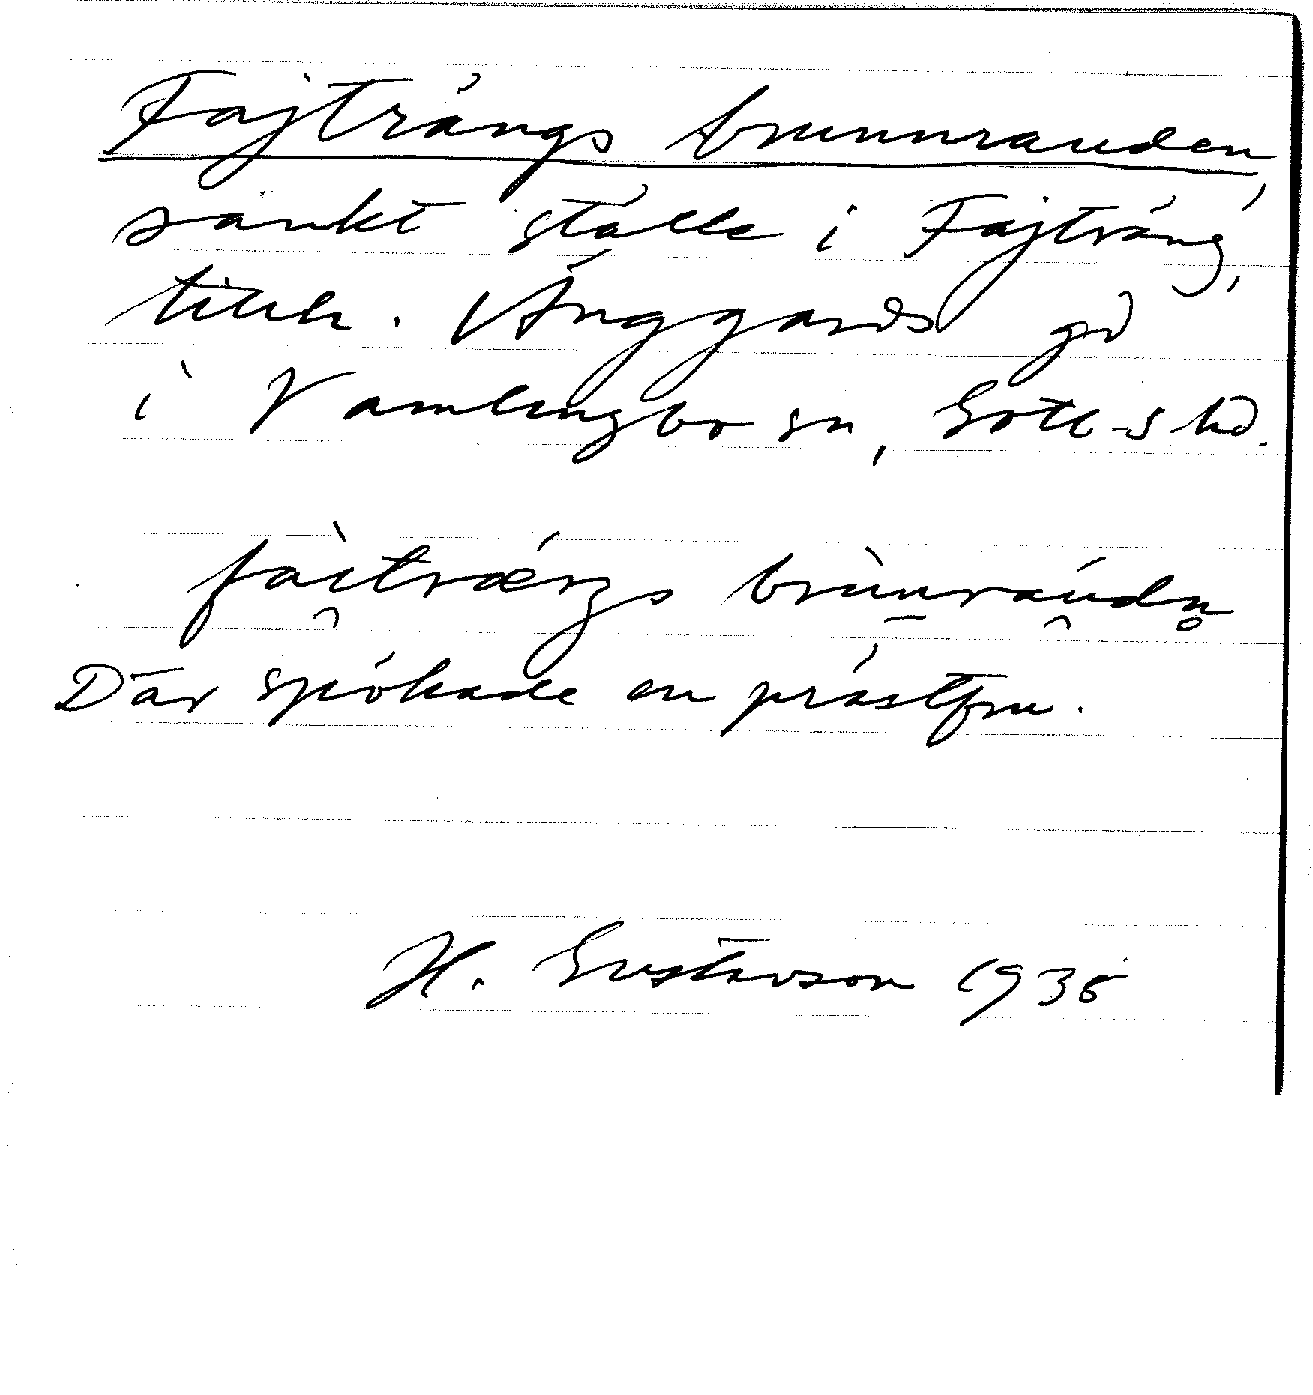 Fajträngs brunnrauden,
sankt ställe i Fajträng,
tillh. Änggårds gd
i Vamlingbo sn, Gotl-s hd.
fàitrǽŋgs brùnráudn̥
Där spökade en prästfru.
H. Gustavson 1935